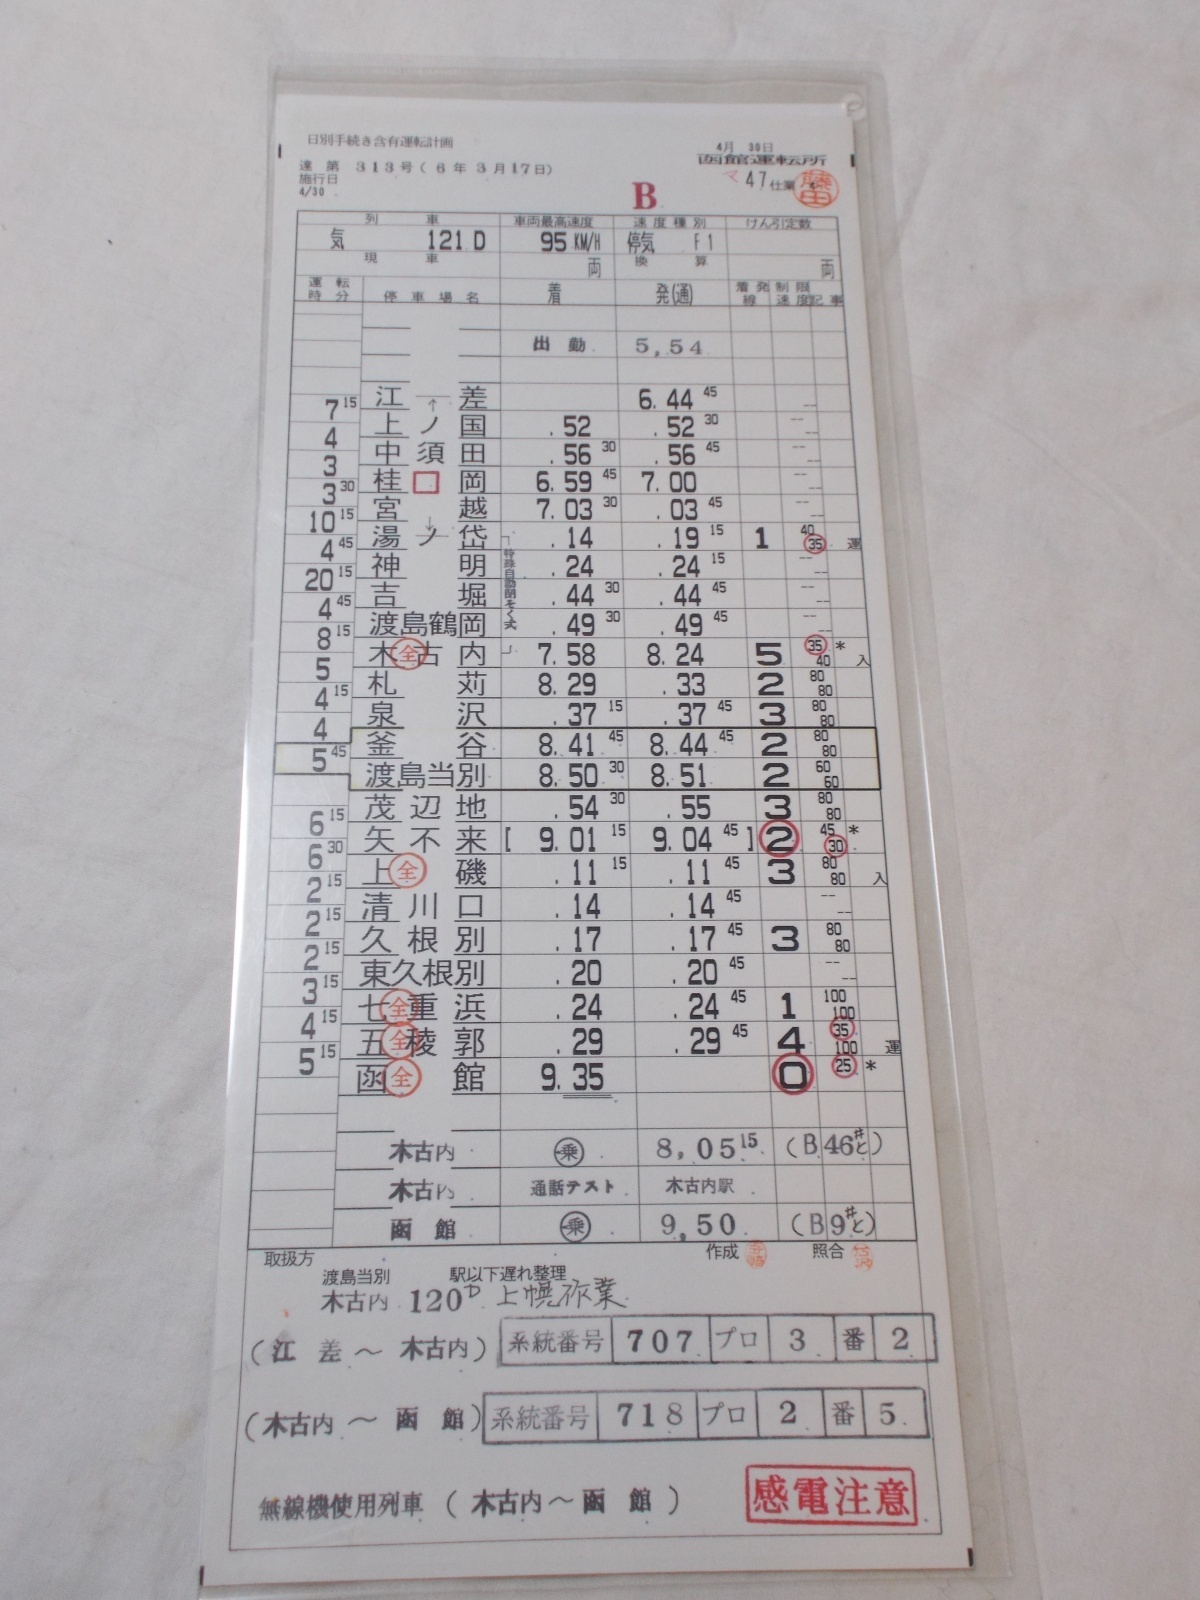 日別手続き含有運転計画
4月 30日
達 第 313号(6年3月17日) 函館運転所
施行日 マ 47仕業 藤田
4/30
B
列 車 車両最高速度 速度種別 けん引定数
気 121D 95KM/H 停気 F1
現 車 両 換 算 両
運転時分 停車場名 着 発(通) 着発線 制限速度 記事
出勤. 5,54
江 差 6.44 45 --
7 15
上ノ国 .52 .52 30 -- --
4
中須田 .56 30 .56 45 -- --
3
桂□岡 6.59 45 7.00 -- --
3 30
宮 越 7.03 30 .03 45 -- --
10 15
湯ノ岱 .14 .19 15 1 40 35 運
特殊自動閉そく式
4 45
神 明 .24 .24 15 -- --
20 15
吉 堀 .44 30 .44 45 -- --
4 45
渡島鶴岡 .49 30 .49 45 -- --
8 15
木古内 全 7.58 8.24 5 35 40 * 入
5
札 苅 8.29 .33 2 80 80
4 15
泉 沢 .37 15 .37 45 3 80 80
4
釜 谷 8.41 45 8.44 45 2 80 80
5 45
渡島当別 8.50 30 8.51 2 60 60
茂辺地 .54 30 .55 3 80 80
6 15
矢不来 [ 9.01 15 9.04 45 ] 2 45 30 *
6 30
上 磯 全 .11 15 .11 45 3 80 80 入
2 15
清川口 .14 .14 45 -- --
2 15
久根別 .17 .17 45 3 80 80
2 15
東久根別 .20 .20 45 -- --
3 15
七重浜 全 .24 .24 45 1 100 100
4 15
五稜郭 全 .29 .29 45 4 35 100 運
5 15
函 館 全 9.35 0 25 *
木古内 乗 8,05 15 (B 46#と)
木古内 通話テスト. 木古内駅
函 館 乗 9,50 (B 9#と)
取扱方 作成 照合
渡島当別 駅以下遅れ整理
木古内 120D 上幌作業
(江 差 ~ 木古内) 系統番号 707 プロ 3 番 2
(木古内 ~ 函 館) 系統番号 718 プロ 2 番 5
無線機使用列車 (木古内~函 館) 感電注意